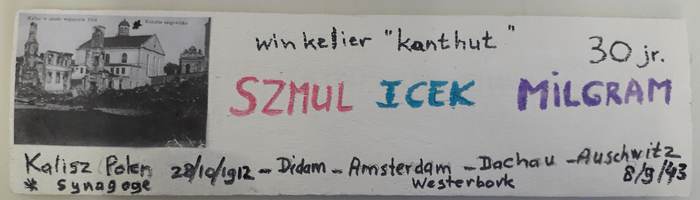 Kalisz w czasie wojny
winkelier "kanthut"
30 jr.
SZMUL ICEK MILGRAM
Kalisz (Polen 28/10/1912 - Didam - Amsterdam - Dachau - Auschwitz
* Synagoge Westerbork 8/9/43